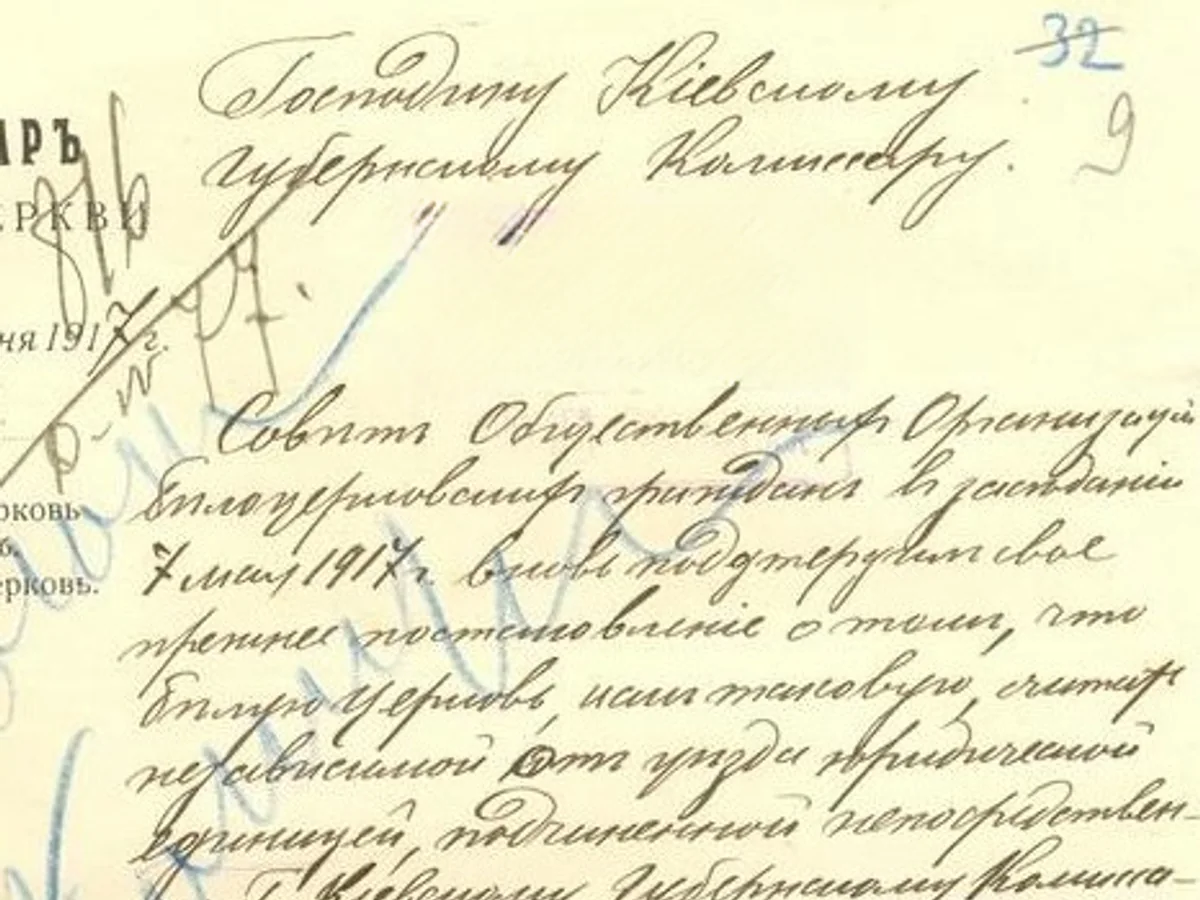 32
Господину Кіевскому
9
Губернскому Комиссару.
АРЪ
ЕРКВИ
ня 1917 г.
Совѣтъ Общественныхъ Организацій
бѣлоцерковскихъ гражданъ въ засѣданіи
рковь
б.
ерковь.
7 мая 1917 г. вновь подтвердилъ свое
прежнее постановленіе о томъ, что
бѣлую Церковь, какъ таковую, считать
независимой отъ уѣзда юридической
единицей, подчиненной непосредствен-
Г. Кіевскому Губернскому Комисса-